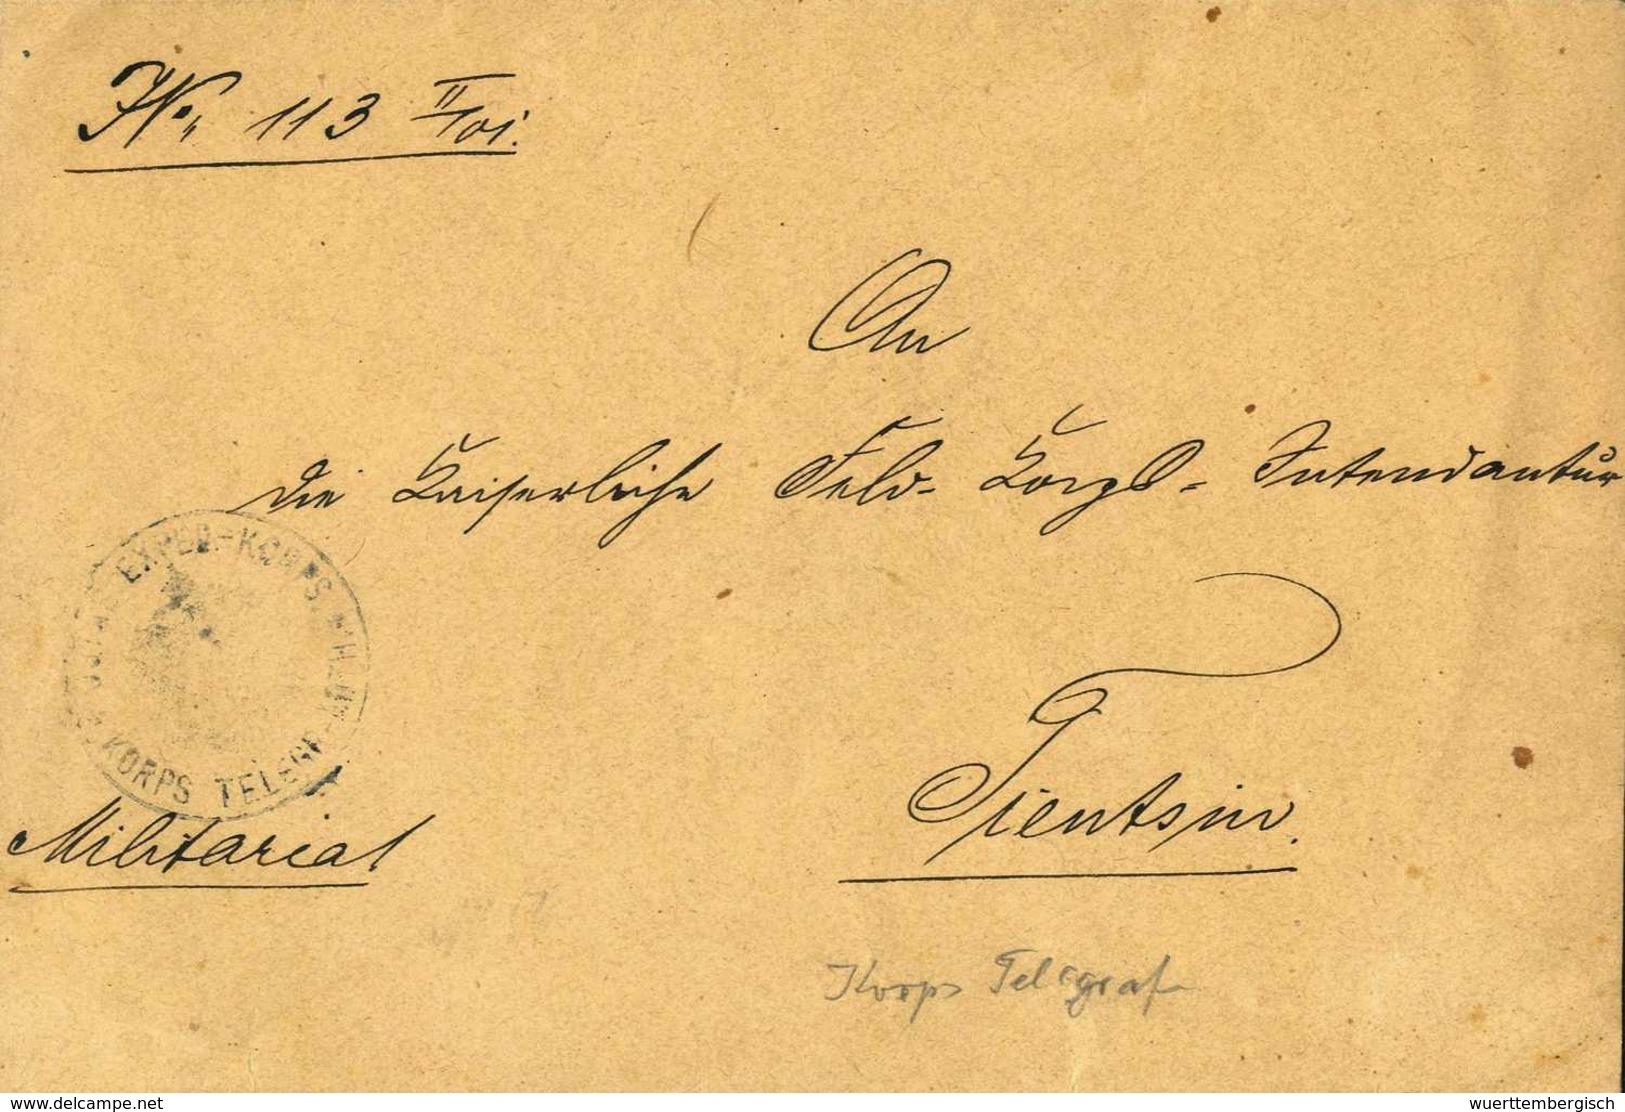 JNo. 113 II/01.
An
die Kaiserliche Feld-Korps-Intendantur
EXPED.-KORPS.
KORPS TELEGR
Tientsin.
Militaria!
Korps Telegraf
www.delcampe.net
wuerttembergisch